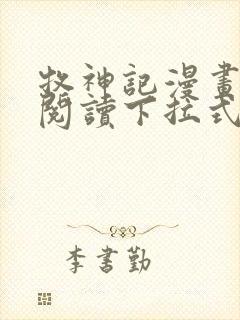 牧神記漫畫
閱讀下拉式
李書勤